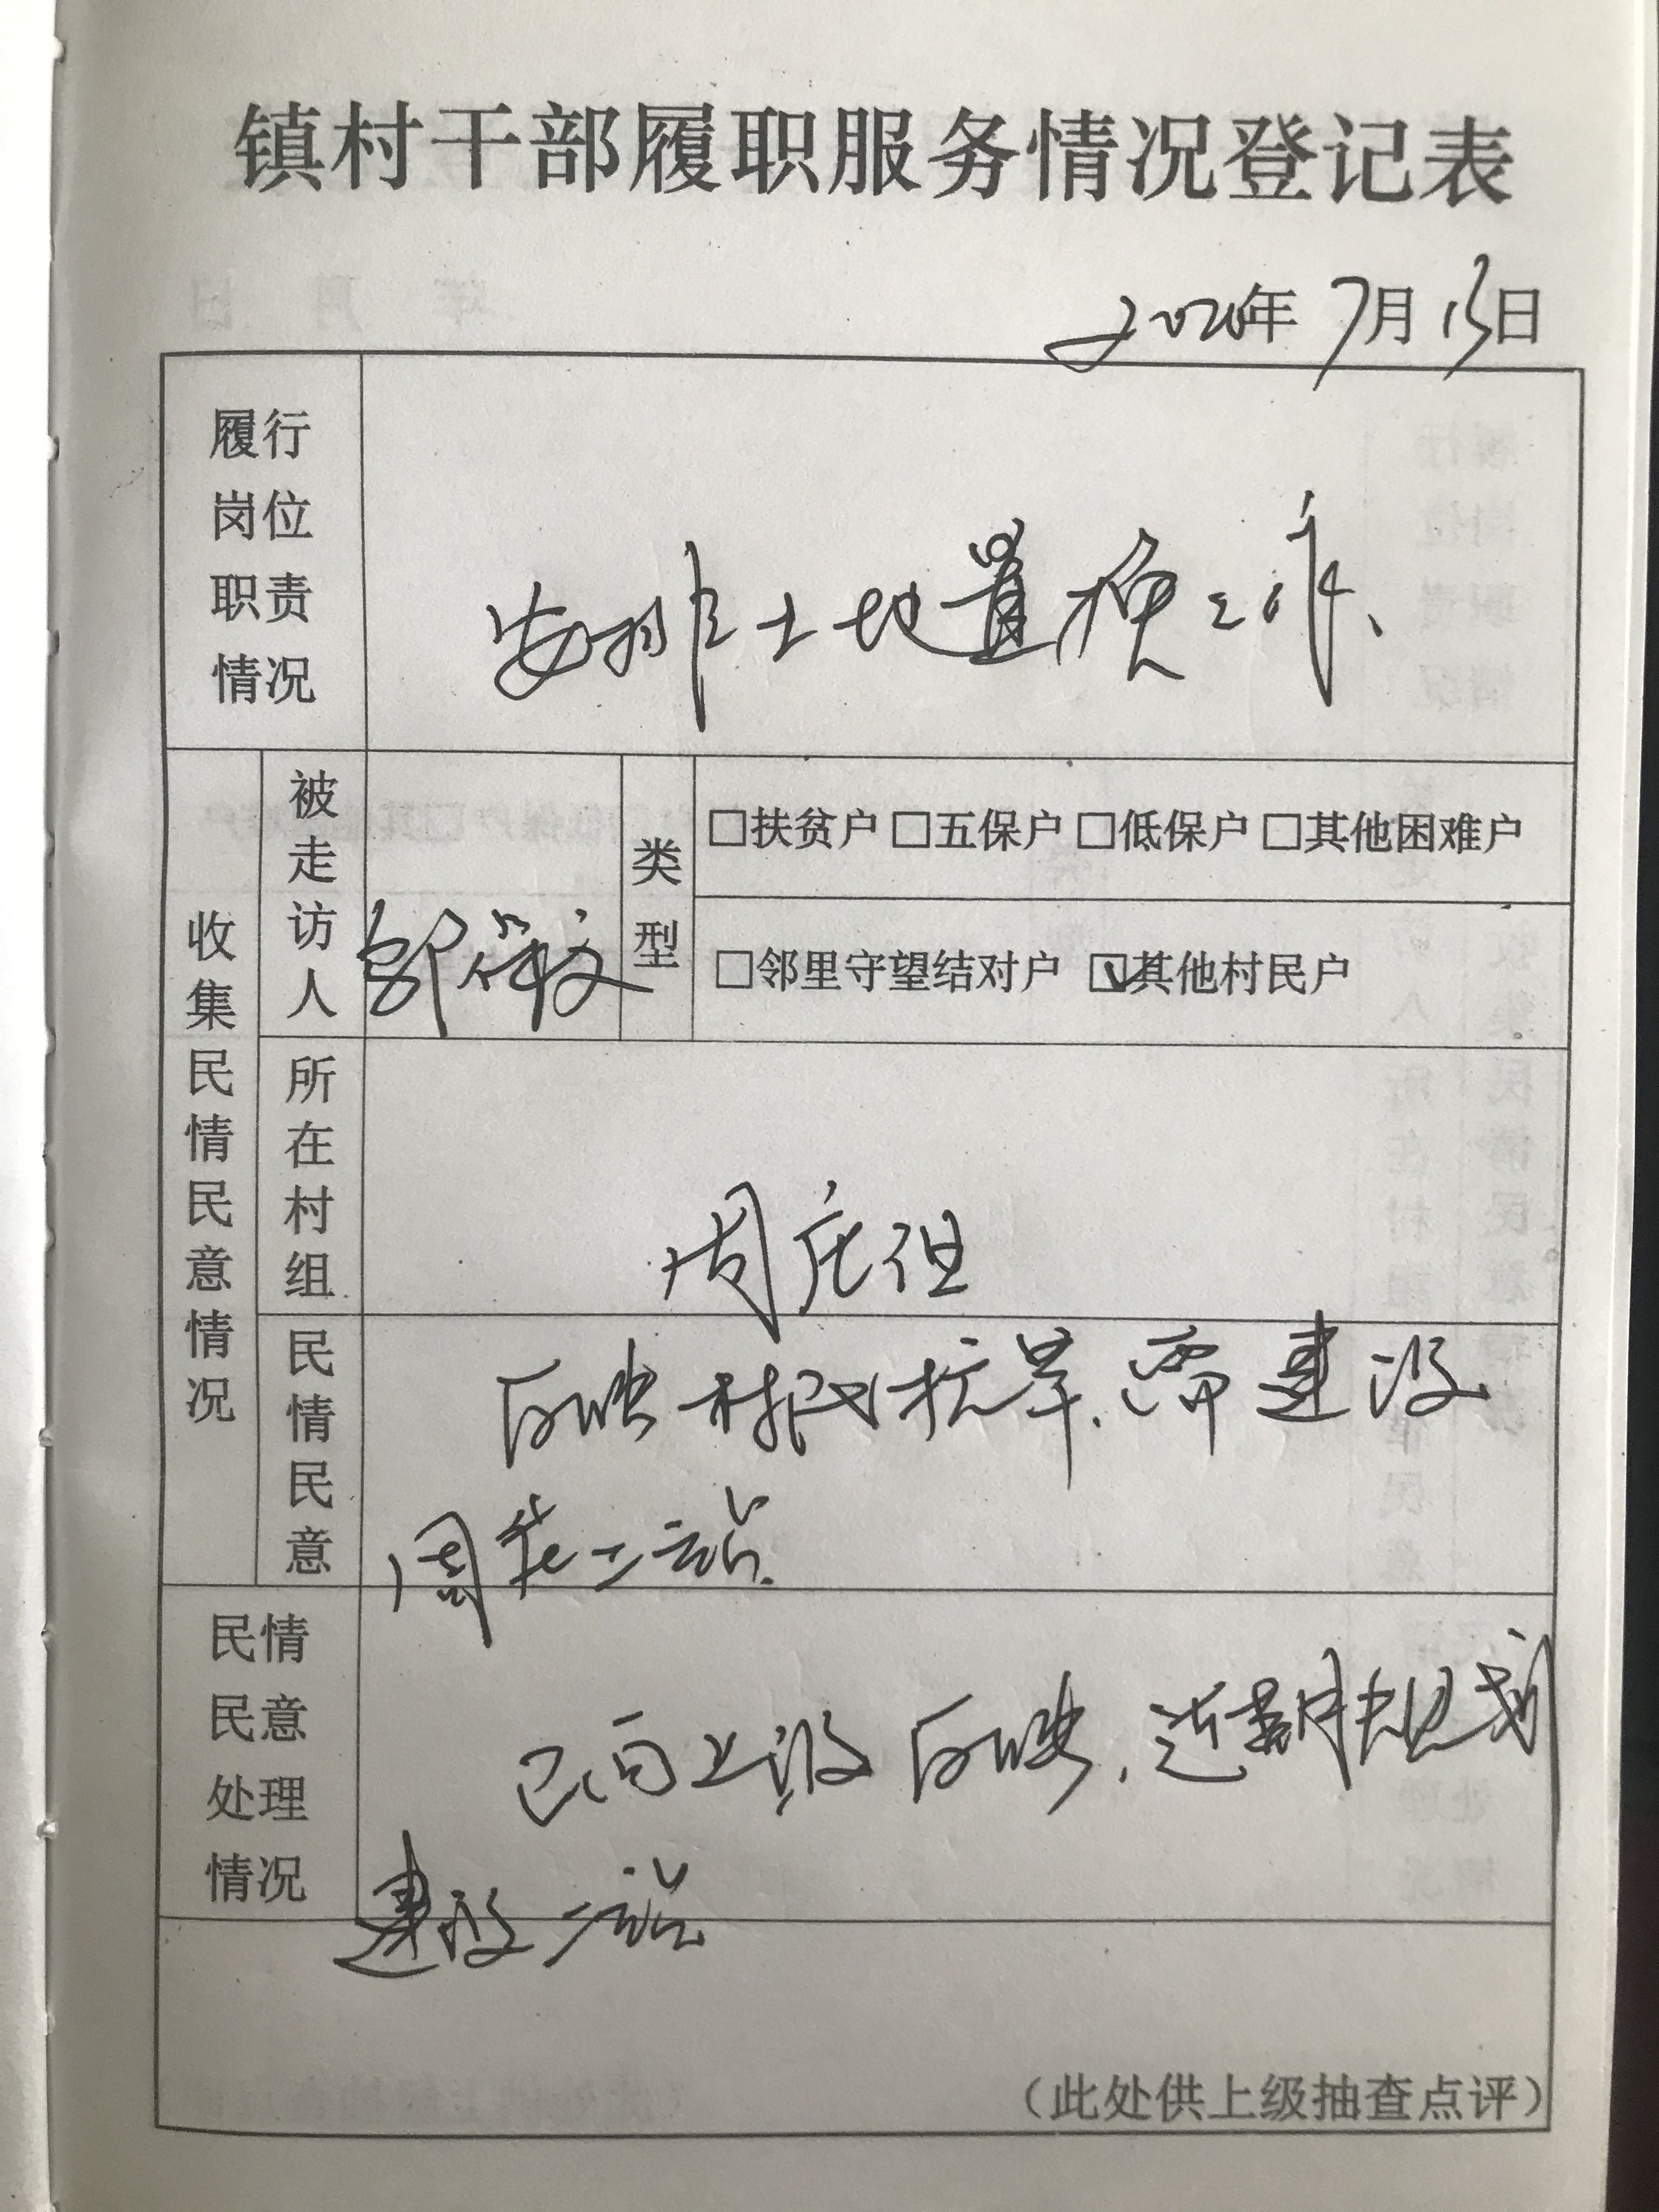 镇村干部履职服务情况登记表
2020年7月15日
履行
岗位
职责
情况
安排土地置换工作、
收集民情民意情况
被走访人
类型
□扶贫户 □五保户 □低保户 □其他困难户
□邻里守望结对户 ☑其他村民户
所在村组
周庄组
民情民意
反映 抗旱、需建设
周庄二站.
民情
民意
处理
情况
已向上级反映,近期规划
建设二站
(此处供上级抽查点评)